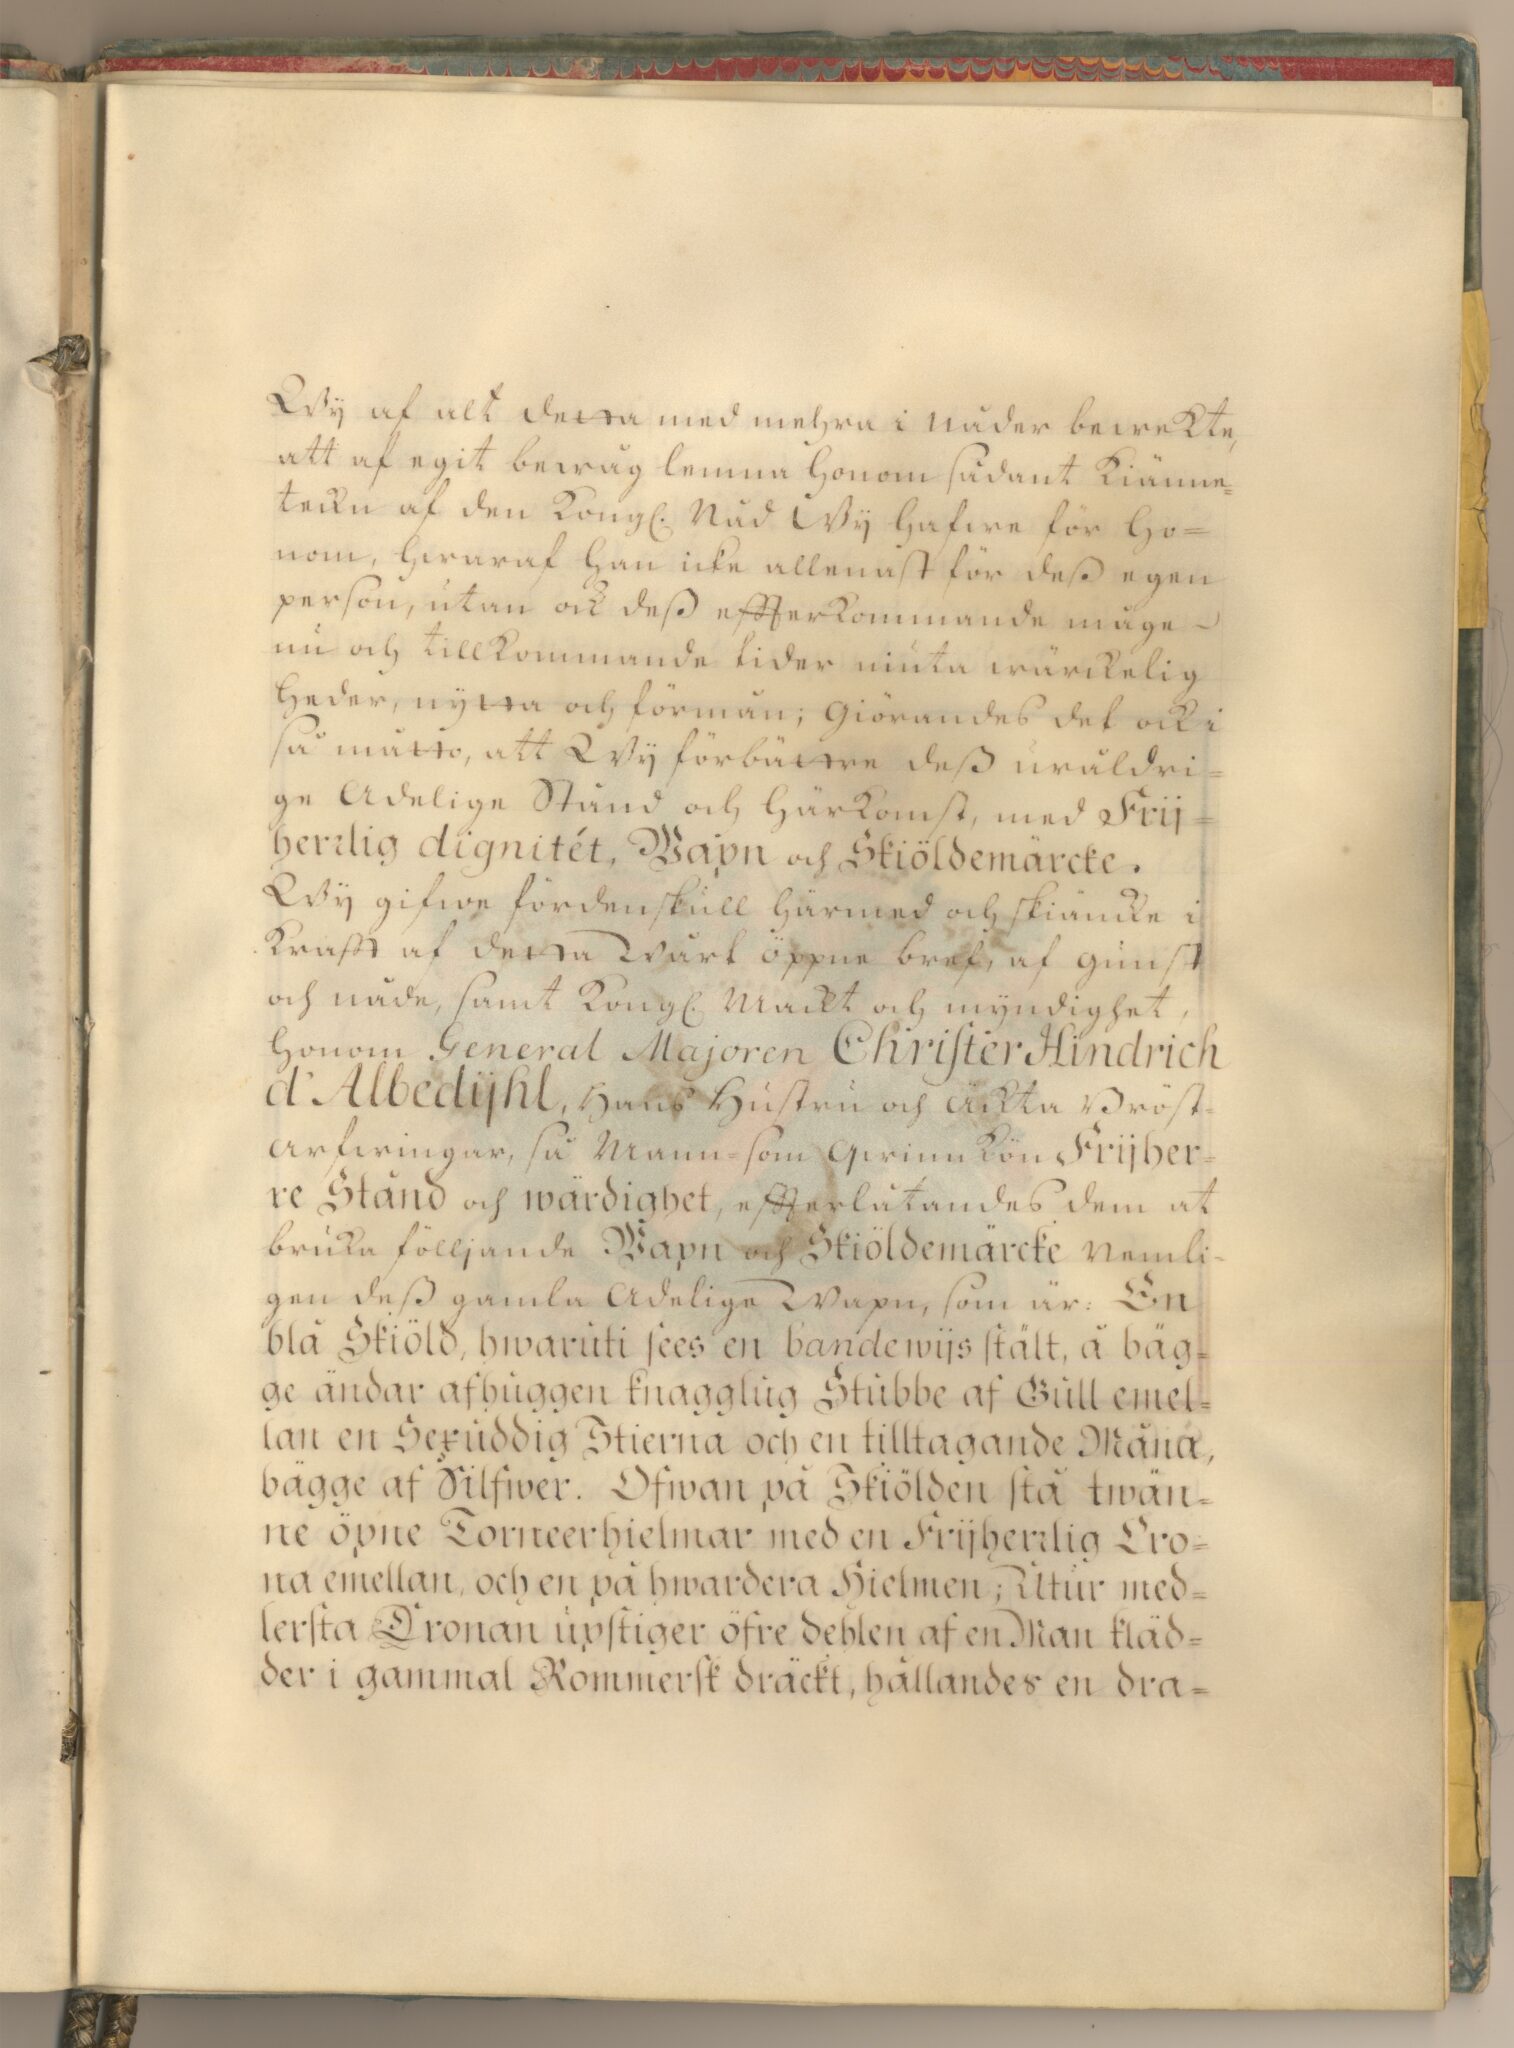 Wÿ af alt detta med mehra i Nåder bewekte,
att af egit bewåg lemna honom sådant Kiänne=
tecken af den Kongl. Nåd Wÿ hafwe för ho=
nom, hwaraf han icke allenast för deß egen
person, utan ock deß effterkommande måge
nu och tillkommande tider niuta wärckelig
heder, nÿtta och förmån; Giörandes det ock i
så måtto, att Wÿ förbättre deß uråldri=
ge Adelige Stånd och härkomst, med Frij=
herrlig dignitét, Wapn och Skiöldemärcke.
Wÿ gifwe fördenskull härmed och skiäncke i
krafft af detta Wårt öppne bref, af gunst
och nåde, samt Kongl. Mackt och mÿndighet,
honom General Majoren Christer Hindrich
d'Albedijhl, Hans Hustru och äckta Bröst=
arfwingar, så Mann=som Qwinnkön Frijher=
re Stånd och wärdighet, effterlåtandes dem at
bruka följjande Wapn och Skiöldemärcke Nemli=
gen deß gamla Adelige Wapn, som är: En
blå Skiöld, hwaruti sees en bandewijs stält, å bäg=
ge ändar afhuggen knagglug Stubbe af Gull emel=
lan en Sexuddig Stierna och en tilltagande Måna,
bägge af Silfwer. Ofwan på Skiölden stå twän=
ne öpne Torneerhielmar med en Frijherrlig Cro=
na emellan, och en på hwardera Hielmen; Utur med=
lersta Cronan upstiger öfre dehlen af en Man kläd=
der i gammal Rommersk dräckt, hållandes en dra=